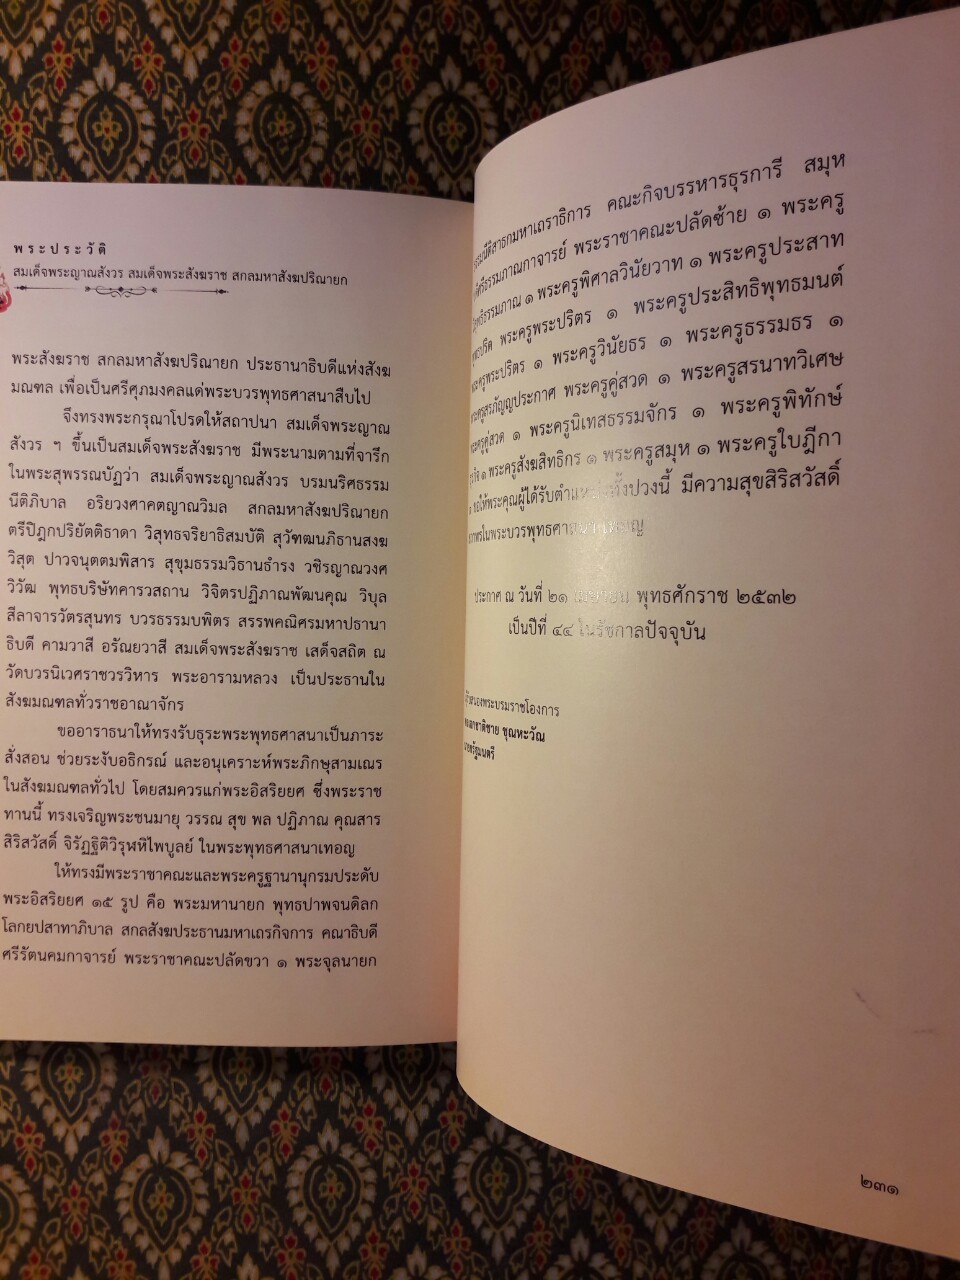 พระประวัติ
สมเด็จพระญาณสังวร สมเด็จพระสังฆราช สกลมหาสังฆปริณายก
พระสังฆราช สกลมหาสังฆปริณายก ประธานาธิบดีแห่งสังฆ
มณฑล เพื่อเป็นศรีศุภมงคลแด่พระบวรพุทธศาสนาสืบไป
จึงทรงพระกรุณาโปรดให้สถาปนา สมเด็จพระญาณ
สังวร ฯ ขึ้นเป็นสมเด็จพระสังฆราช มีพระนามตามที่จารึก
ในพระสุพรรณบัฏว่า สมเด็จพระญาณสังวร บรมนริศธรรม
นีติภิบาล อริยวงศาคตญาณวิมล สกลมหาสังฆปริณายก
ตรีปิฎกปริยัตติธาดา วิสุทธจริยาธิสมบัติ สุวัฑฒนภิธานสงฆ
วิสุต ปาวจนุตตมพิสาร สุขุมธรรมวิธานธำรง วชิรญาณวงศ
วิวัฒ พุทธบริษัทคารวสถาน วิจิตรปฏิภาณพัฒนคุณ วิบุล
สีลาจารวัตรสุนทร บวรธรรมบพิตร สรรพคณิศรมหาปธานา
ธิบดี คามวาสี อรัณยวาสี สมเด็จพระสังฆราช เสด็จสถิต ณ
วัดบวรนิเวศราชวรวิหาร พระอารามหลวง เป็นประธานใน
สังฆมณฑลทั่วราชอาณาจักร
ขออาราธนาให้ทรงรับธุระพระพุทธศาสนาเป็นภาระ
สั่งสอน ช่วยระงับอธิกรณ์ และอนุเคราะห์พระภิกษุสามเณร
ในสังฆมณฑลทั่วไป โดยสมควรแก่พระอิสริยยศ ซึ่งพระราช
ทานนี้ ทรงเจริญพระชนมายุ วรรณ สุข พล ปฏิภาณ คุณสาร
สิริสวัสดิ์ จิรัฏฐิติวิรุฬหิไพบูลย์ ในพระพุทธศาสนาเทอญ
ให้ทรงมีพระราชาคณะและพระครูฐานานุกรมประดับ
พระอิสริยยศ ๑๕ รูป คือ พระมหานายก พุทธปาพจนดิลก
โลกยปสาทาภิบาล สกลสังฆประธานมหาเถรกิจการ คณาธิบดี
ศรีรัตนคมกาจารย์ พระราชาคณะปลัดขวา ๑ พระจุลนายก
ธรรมนีติสาธกมหาเถราธิการ คณะกิจบรรหารธุรการี สมุห
ศรีธรรมภาณกาจารย์ พระราชาคณะปลัดซ้าย ๑ พระครู
ธรรมภาณ ๑ พระครูพิศาลวินัยวาท ๑ พระครูประสาท
พระครูพระปริตร ๑ พระครูประสิทธิพุทธมนต์
พระครูพระปริตร ๑ พระครูวินัยธร ๑ พระครูธรรมธร ๑
พระครูสรภัญญประกาศ พระครูคู่สวด ๑ พระครูสรนาทวิเศษ
พระครูคู่สวด ๑ พระครูนิเทสธรรมจักร ๑ พระครูพิทักษ์
๑ พระครูสังฆสิทธิกร ๑ พระครูสมุห ๑ พระครูใบฎีกา
๑ ขอให้พระคุณผู้ได้รับตำแหน่งทั้งปวงนี้ มีความสุขสิริสวัสดิ์
ในพระบวรพุทธศาสนาเทอญ
ประกาศ ณ วันที่ ๒๑ เมษายน พุทธศักราช ๒๕๓๒
เป็นปีที่ ๔๔ ในรัชกาลปัจจุบัน
ผู้รับสนองพระบรมราชโองการ
พลเอกชาติชาย ชุณหะวัณ
นายกรัฐมนตรี
๒๓๑